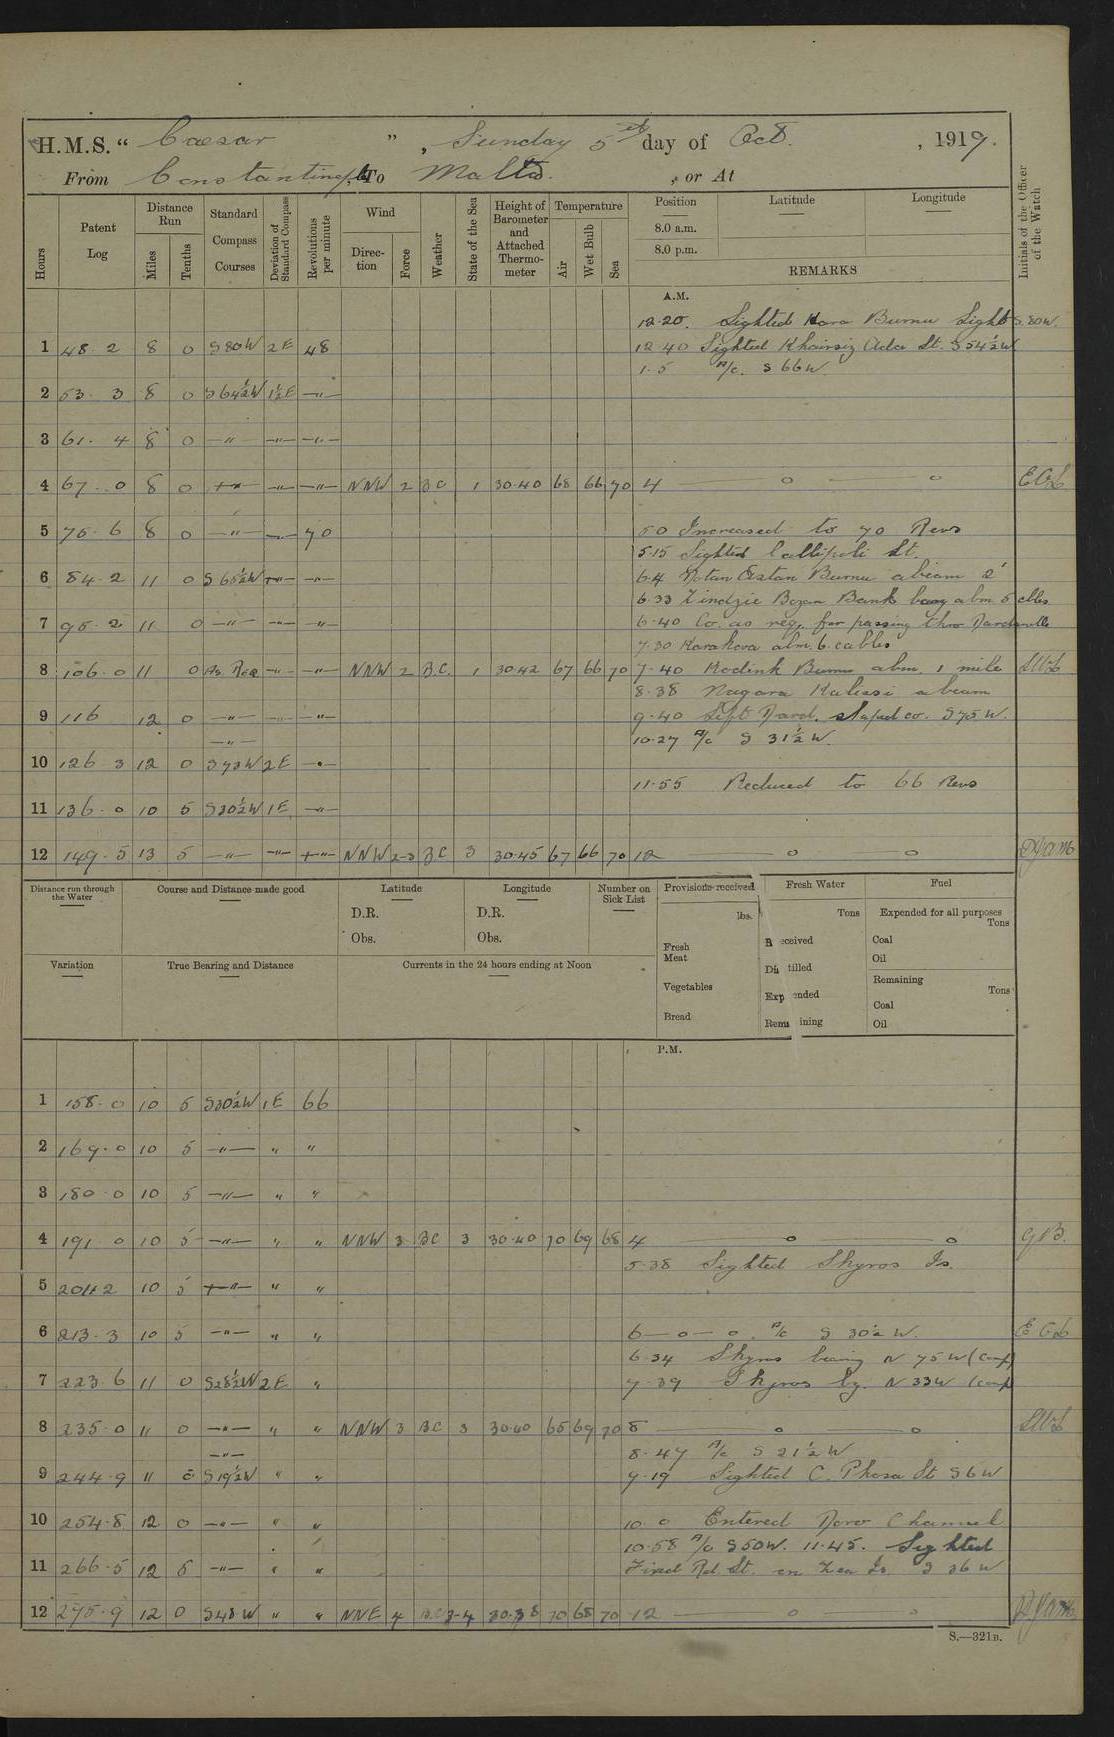 H.M.S. " Caesar ", Sunday 5th day of Oct., 1919.
From Constantinople, To Malta., or At
Hours
Patent Log
Distance Run
Miles
Tenths
Standard Compass Courses
Deviation of Standard Compass
Revolutions per minute
Wind
Direction
Force
Weather
State of the Sea
Height of Barometer and Attached Thermometer
Temperature
Air
Wet Bulb
Sea
Position Latitude Longitude
8.0 a.m.
8.0 p.m.
REMARKS
Initials of the Officer of the Watch
A.M.
12.20. Sighted Kara Burnu Light S.80W.
1 48.2 8 0 S80W 2E 48 12.40 Sighted Khairsiz Ada Lt. S54½W
1.5 A/c. S66W
2 53.3 8 0 S64½W 1½E —"—
3 61.4 8 0 —"— —"— —"—
4 67.0 8 0 —"— —"— —"— NNW 2 BC 1 30.40 68 66 70 4 — o — o
5 75.6 8 0 —"— —"— 70 5.0 Increased to 70 Revs
5.15 Sighted Gallipoli Lt.
6 84.2 11 0 S65½W —"— —"— 6.4 Burnu abeam 2'
6.33 Zindjie Bozan Bank abm. 5 cbles
7 95.2 11 0 —"— —"— —"— 6.40 Co. as req. for passing thro Dardanelles
7.30 Karakova abm. 6 cables
8 106.0 11 0 As Req —"— —"— NNW 2 B.C. 1 30.42 67 66 70 7.40 Burnu abm. 1 mile
8.38 Nagara Kalessi abeam
9 116 12 0 —"— —"— —"— 9.40 Left Dard. shaped co. S75W.
—"— 10.27 A/c S 31½ W.
10 126.3 12 0 S73W 2E —"—
11.55 Reduced to 66 Revs
11 136.0 10 5 S30½W 1E —"—
12 149.5 13 5 —"— —"— —"— NNW 2-3 BC 3 30.45 67 66 70 12 — o — o
Distance run through the Water
Course and Distance made good
Latitude
D.R.
Obs.
Longitude
D.R.
Obs.
Number on Sick List
Provisions received
lbs.
Fresh Meat
Vegetables
Bread
Fresh Water
Tons
Received
Distilled
Expended
Remaining
Fuel
Expended for all purposes
Tons
Coal
Oil
Remaining
Tons
Coal
Oil
Variation
True Bearing and Distance
Currents in the 24 hours ending at Noon
P.M.
1 158.0 10 5 S30½W 1E 66
2 169.0 10 5 —"— " "
3 180.0 10 5 —"— " "
4 191.0 10 5 —"— " " NNW 3 BC 3 30.40 70 69 68 4 — o — o
5.38 Sighted Skyros Is.
5 204.2 10 5 —"— " "
6 213.3 10 5 —"— " " 6 — o — o. A/c S 30½ W.
6.34 Skyros bearing N 75 W (Comp)
7 223.6 11 0 S28½W 2E " 7.39 Skyros bg. N 33W (comp)
8 235.0 11 0 —"— " " NNW 3 BC 3 30.40 65 69 70 8 — o — o
—"— 8.47 A/c S 21½ W
9 244.9 11 0 S19½W " " 9.19 Sighted C. Phosa Lt S6W
10 254.8 12 0 —"— " " 10.0 Entered Doro Channel
10.58 A/c S50W. 11.45. Sighted
11 266.5 12 5 —"— " " Fixed Rd. Lt. on Zea Is. S 36 W
12 275.9 12 0 S48W " " NNE 4 BC 3-4 30.38 70 68 70 12 — o — o
S.—321B.